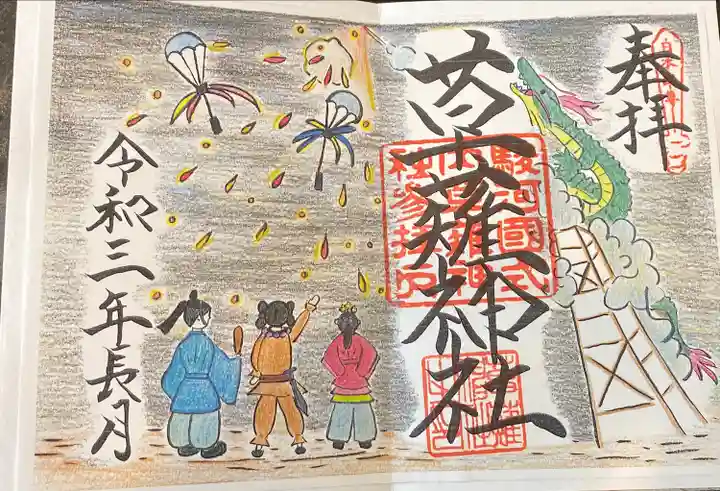 奉拝
草薙神社
駿河國式
内草薙神
社参拝印
令和三年長月